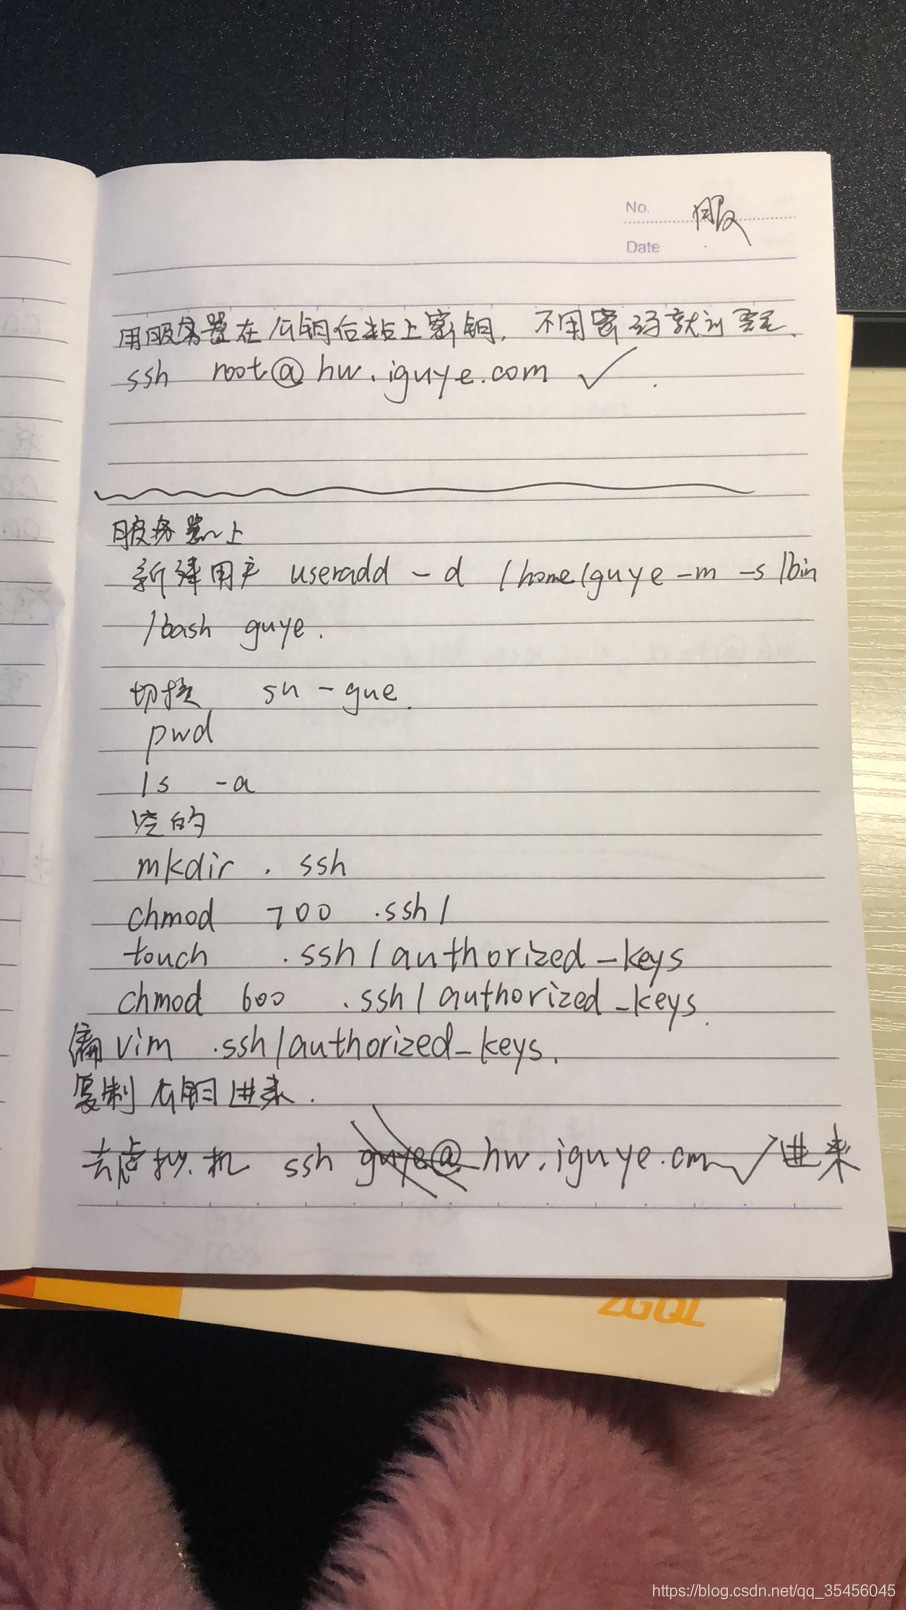 No. 服
Date
用服务器在公钥后粘上密钥，不用密码就订
ssh root@hw.iguye.com ✓.
服务器上
新建用户 useradd -d /home/guye -m -s /bin
/bash guye.
切换 su - gue.
pwd
ls -a
空的
mkdir .ssh
chmod 700 .ssh/
touch .ssh/authorized_keys
chmod 600 .ssh/authorized_keys.
编vim .ssh/authorized_keys.
复制公钥进来.
去虚拟机 ssh guye@hw.iguye.com✓进来
ZGQL
https://blog.csdn.net/qq_35456045